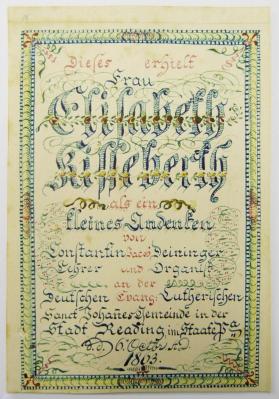 Dieses erhielt
Frau
Elisabeth
Kisseberth
als ein
kleines Andenken
von
Constantin Jacob Deininger
Lehrer und Organist
an der
Deutschen Evang: Lutherischen
Sanct Johanes Gemeinde in der
Stadt Reading im Staate Pa
d.d. 6. October A.D.
1863.